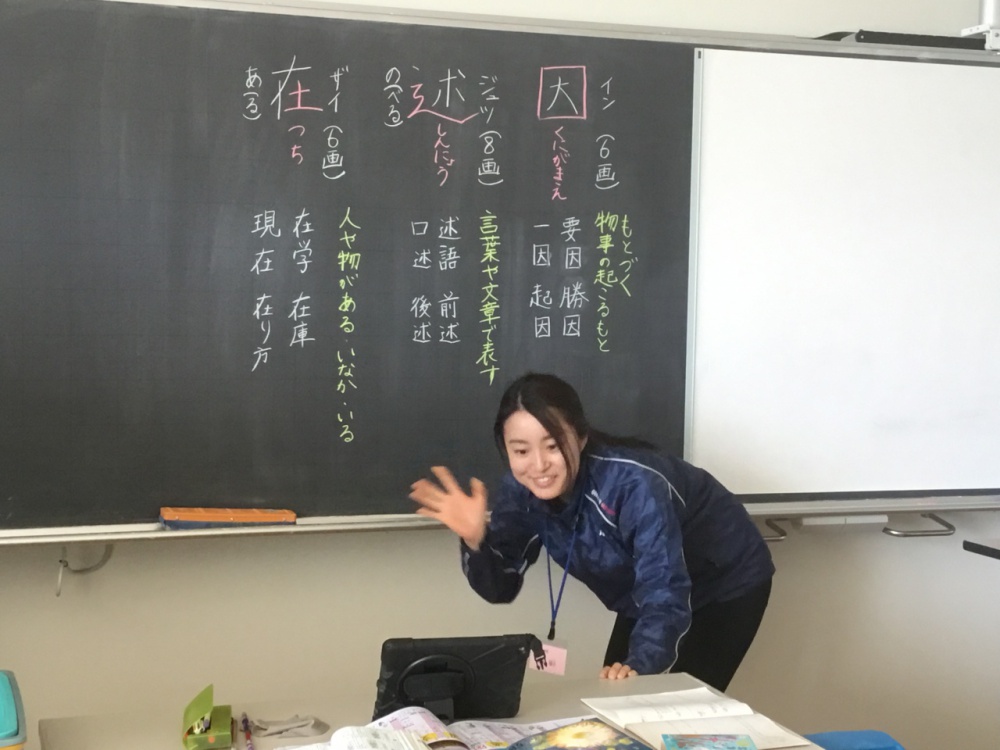 イン（６画）
因
くにがまえ
もとづく
物事の起こるもと
要因 勝因
一因 起因
ジュツ（８画）
述
しんにょう
のべる）
言葉や文章で表す
述語 前述
口述 後述
ザイ（６画）
在
つち
ある）
人や物がある・いなか・いる
在学 在庫
現在 在り方